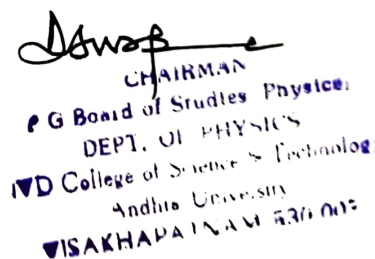 CHAIRMAN
P G Board of Studies Physics,
DEPT. OF PHYSICS
College of Science & Technology
Andhra University
VISAKHAPATNAM 530 003